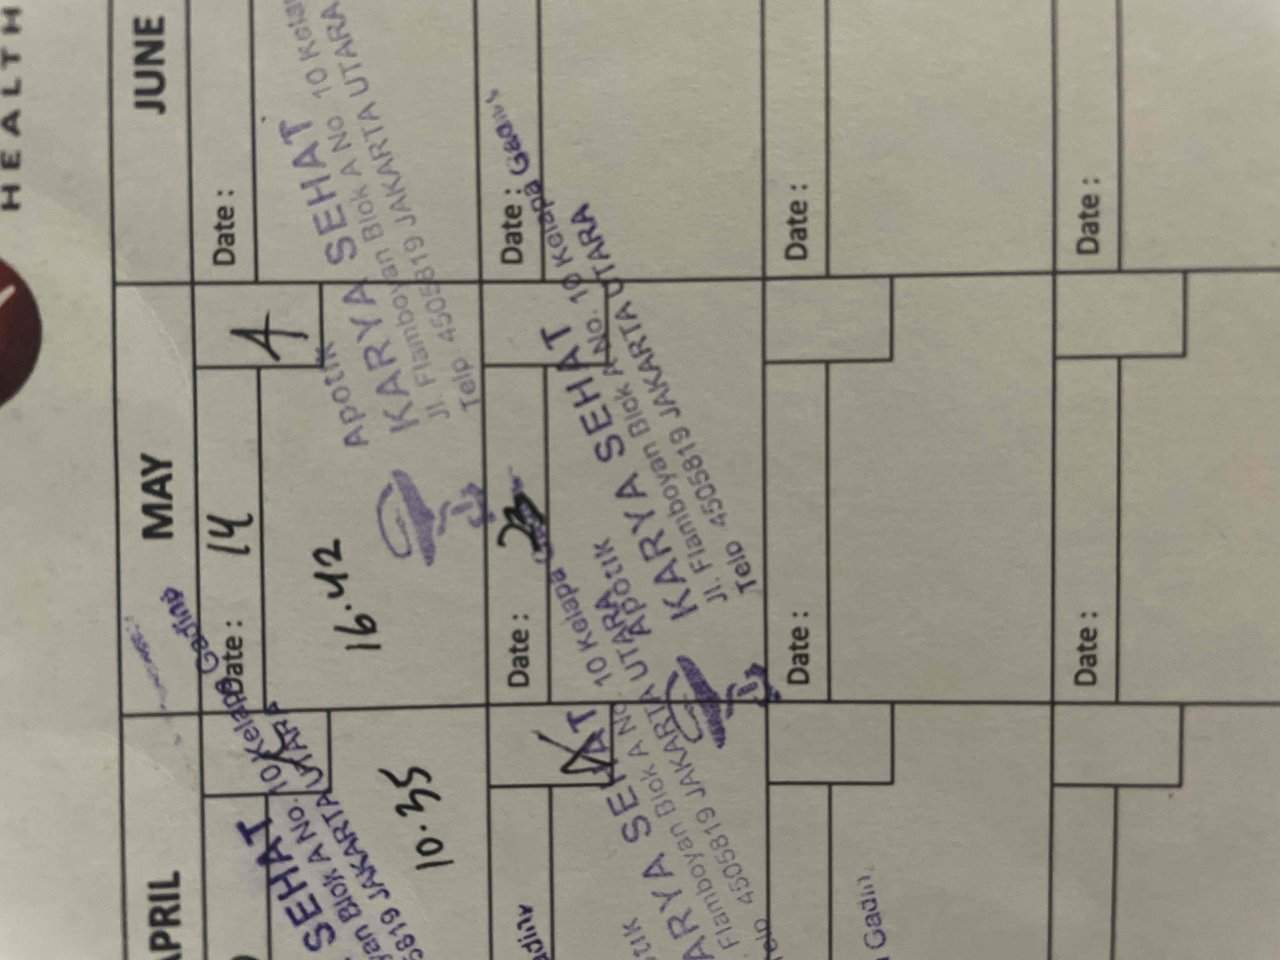 HEALTH
APRIL
MAY
JUNE
SEHAT
No. 10 Kelapa Gading
Blok A
5819 JAKARTA UTARA
10.35
Date : 14
A
16.42
Apotik
KARYA SEHAT
Jl. Flamboyan Blok A No. 10 Kelap
Telp 4505819 JAKARTA UTARA
Date :
A
KARYA SEHAT
Flamboyan Blok A No. 10 Kelapa
Telp 4505819 JAKARTA UTARA
Date : 23
Apotik
KARYA SEHAT
Jl. Flamboyan Blok A No. 10 Kelapa Gading
Telp 4505819 JAKARTA UTARA
Date :
Date :
Date :
Date :
Date :